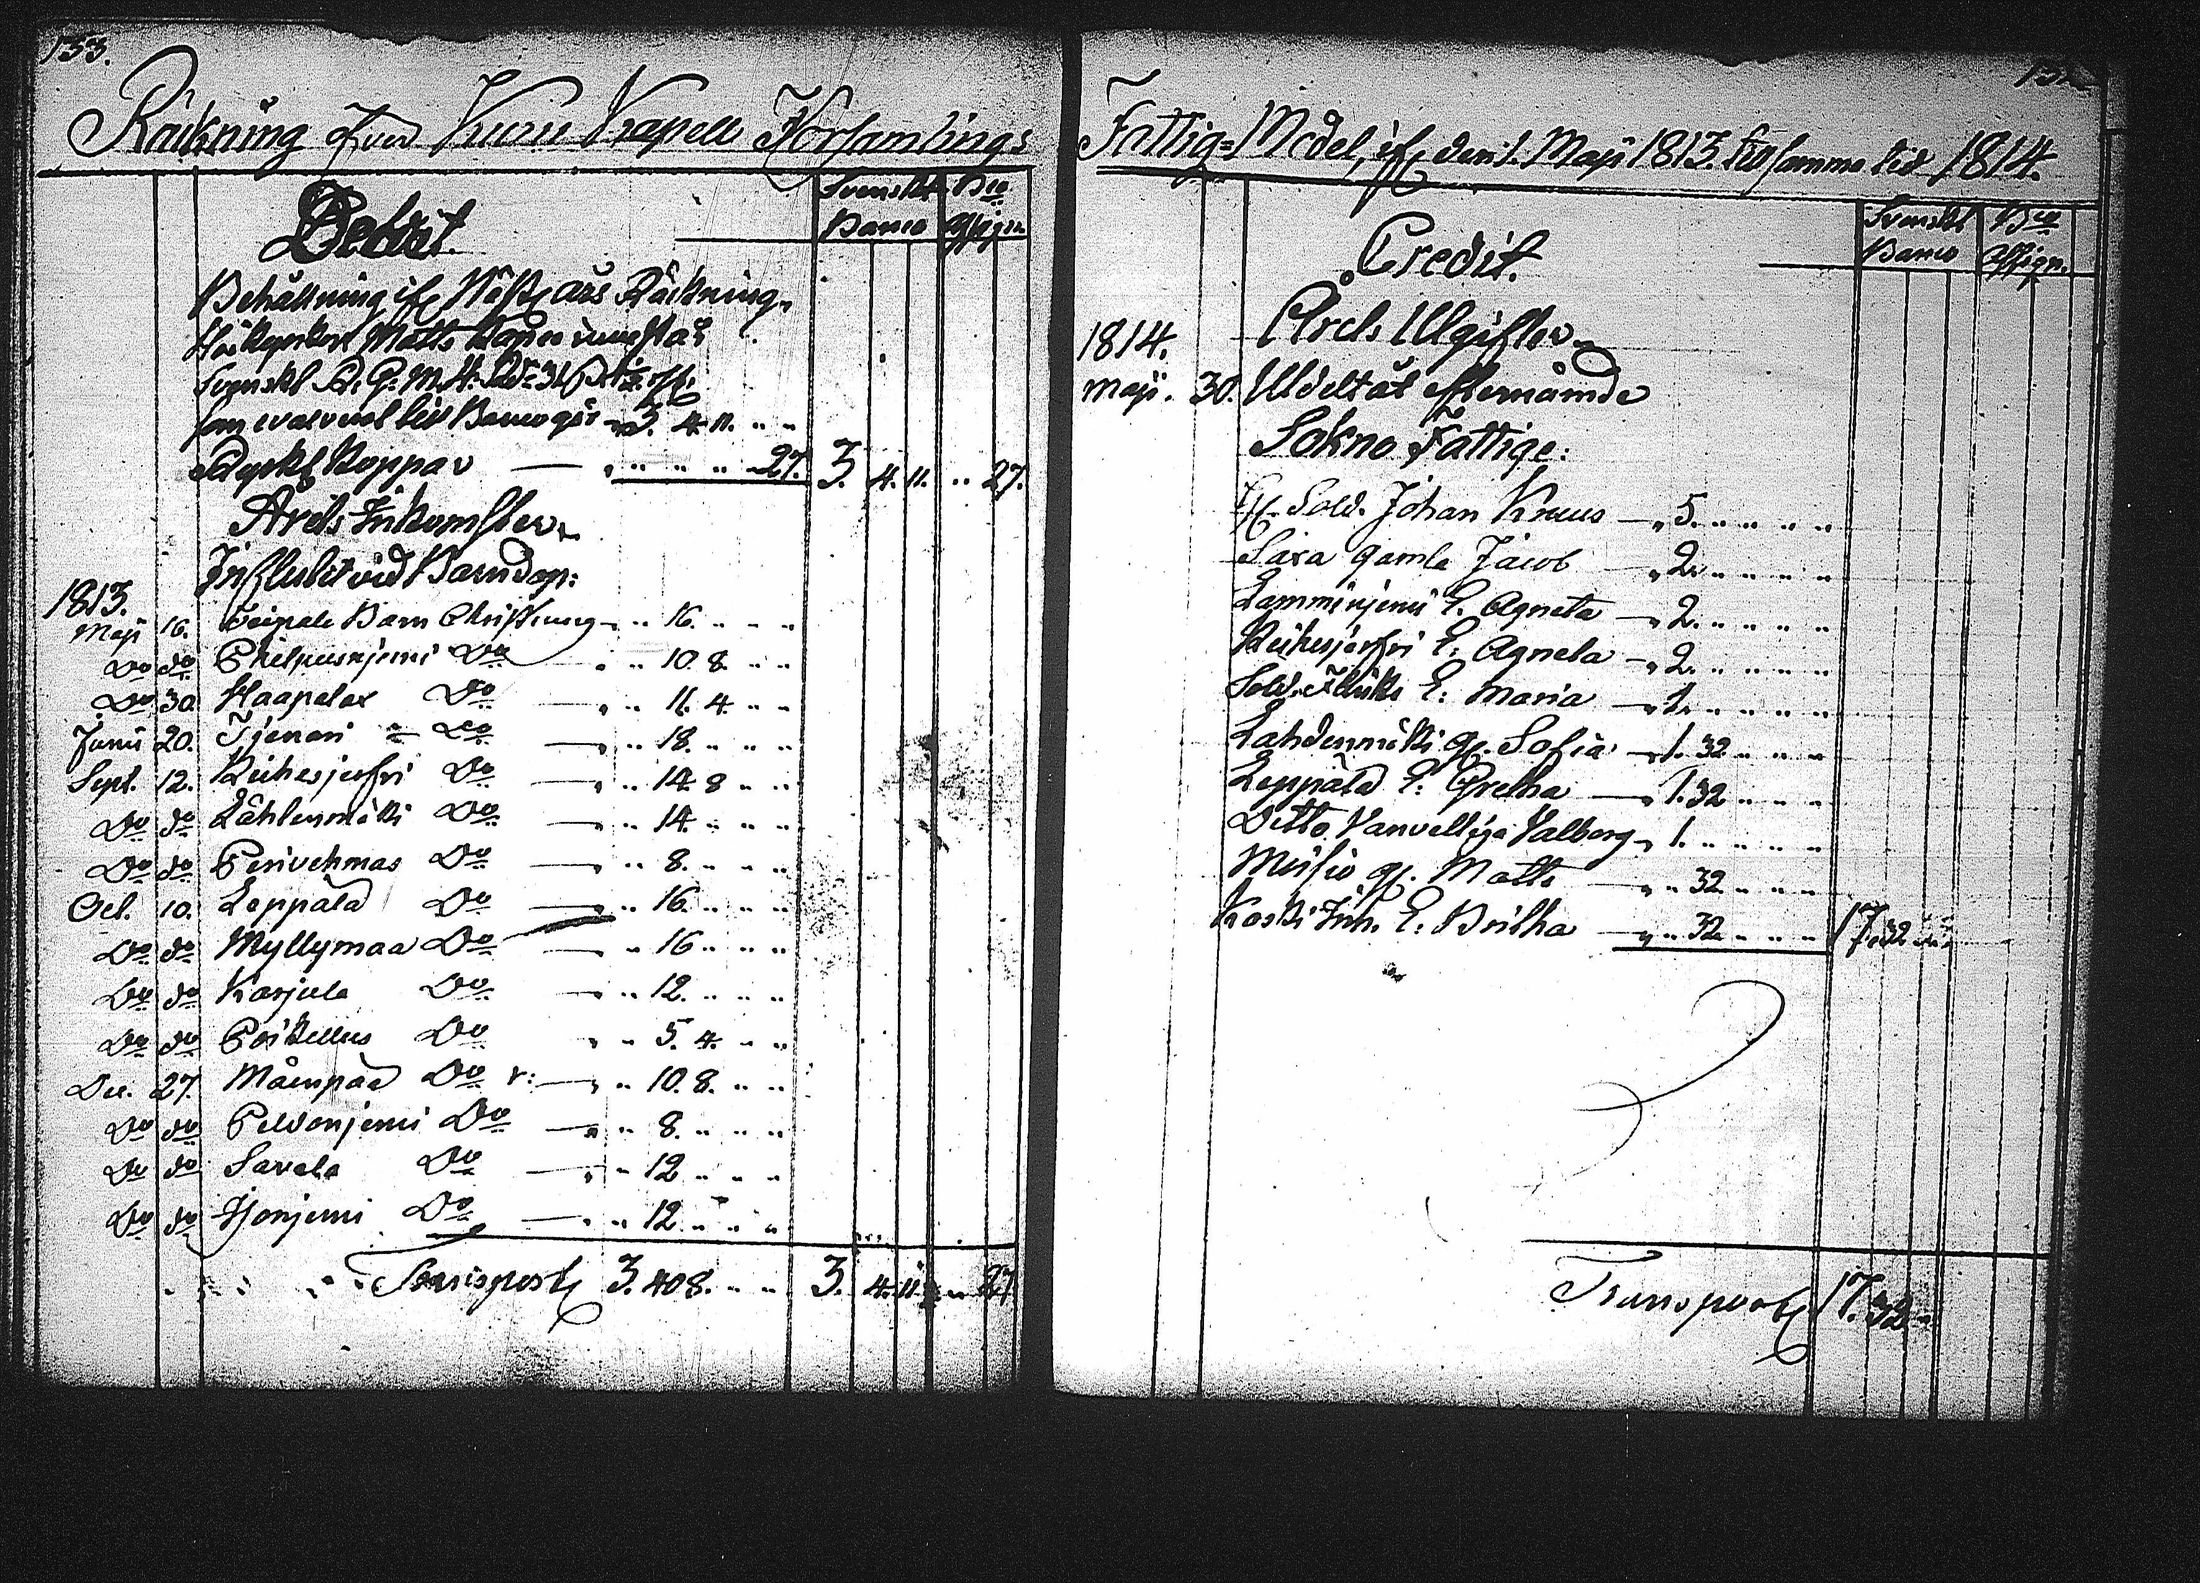 133.
Räkning öfver Kuru Kapell Församlings
Svenskt Rco
Banco Assign.
Debet.
Behållning ifr Nästl. års Räkning,
Matts
Svenskt
Banco gör 3. 4. 11. " "
Ryskt Koppar — " " " " " 27. 3. 4. 11. " 27.
Årets Inkomster.
Influtit vid Barndop:
1813.
Maji 16. Teipale Barn Christning — " " 16. " " "
Do do Philpusnjemi Do — " " 10. 8. " "
Do 30. Haapalax Do — " " 11. 4. " "
Junii 20. Tjenari Do — " " 18. " " "
Sept. 12. Reihesjerfvi Do — " " 14. 8 " "
Do do Lähdenmäki Do — " " 14. " " "
Do do Perivehmas Do — " " 8. " " "
Oct. 10. Leppälä Do — " " 16. " " "
Do do Myllymaa Do — " " 16 " " "
Do do Karjula Do — " " 12. " " "
Do do Poikellus Do " " 5. 4. " "
Dec. 27. Mäenpää Do — " " 10. 8. " "
Do do Peldonjemi Do — " " 8. " " "
Do do Savela Do — " " 12 " " "
Do do Ijonjemi Do — " " 12. " " "
Transport 3. 40 8. " " 3. 4. 11 " 27
Fattig-Medel, ifr den 1. Maji 1813. till samma tid 1814.
Svenskt Rco
Banco Assign.
Credit.
Årets Utgifter.
1814.
Maji. 30. Utdelt åt efternämde
Sokne Fattige:
Sold. Johan Kruus — " 5. " " " "
Saxa gamla Jacob — " 2. " " " "
Lamminjemi E. Agneta — " 2. " " " "
Reihesjerfvi E: Agneta — " 2. " " " "
Sold. E: Maria — " 1. " " " "
Lahdenmäki gl. Sofia — " 1. 32 " " "
Leppälä E: Gretha — " 1. 32 " " "
Ditto Vanvettiga Valborg " 1. " " " "
gl. Matts — " " 32 " " "
Koski Inh. E: Britha — " " 32 " " " 17. 32 " "
Transport 17. 32 "